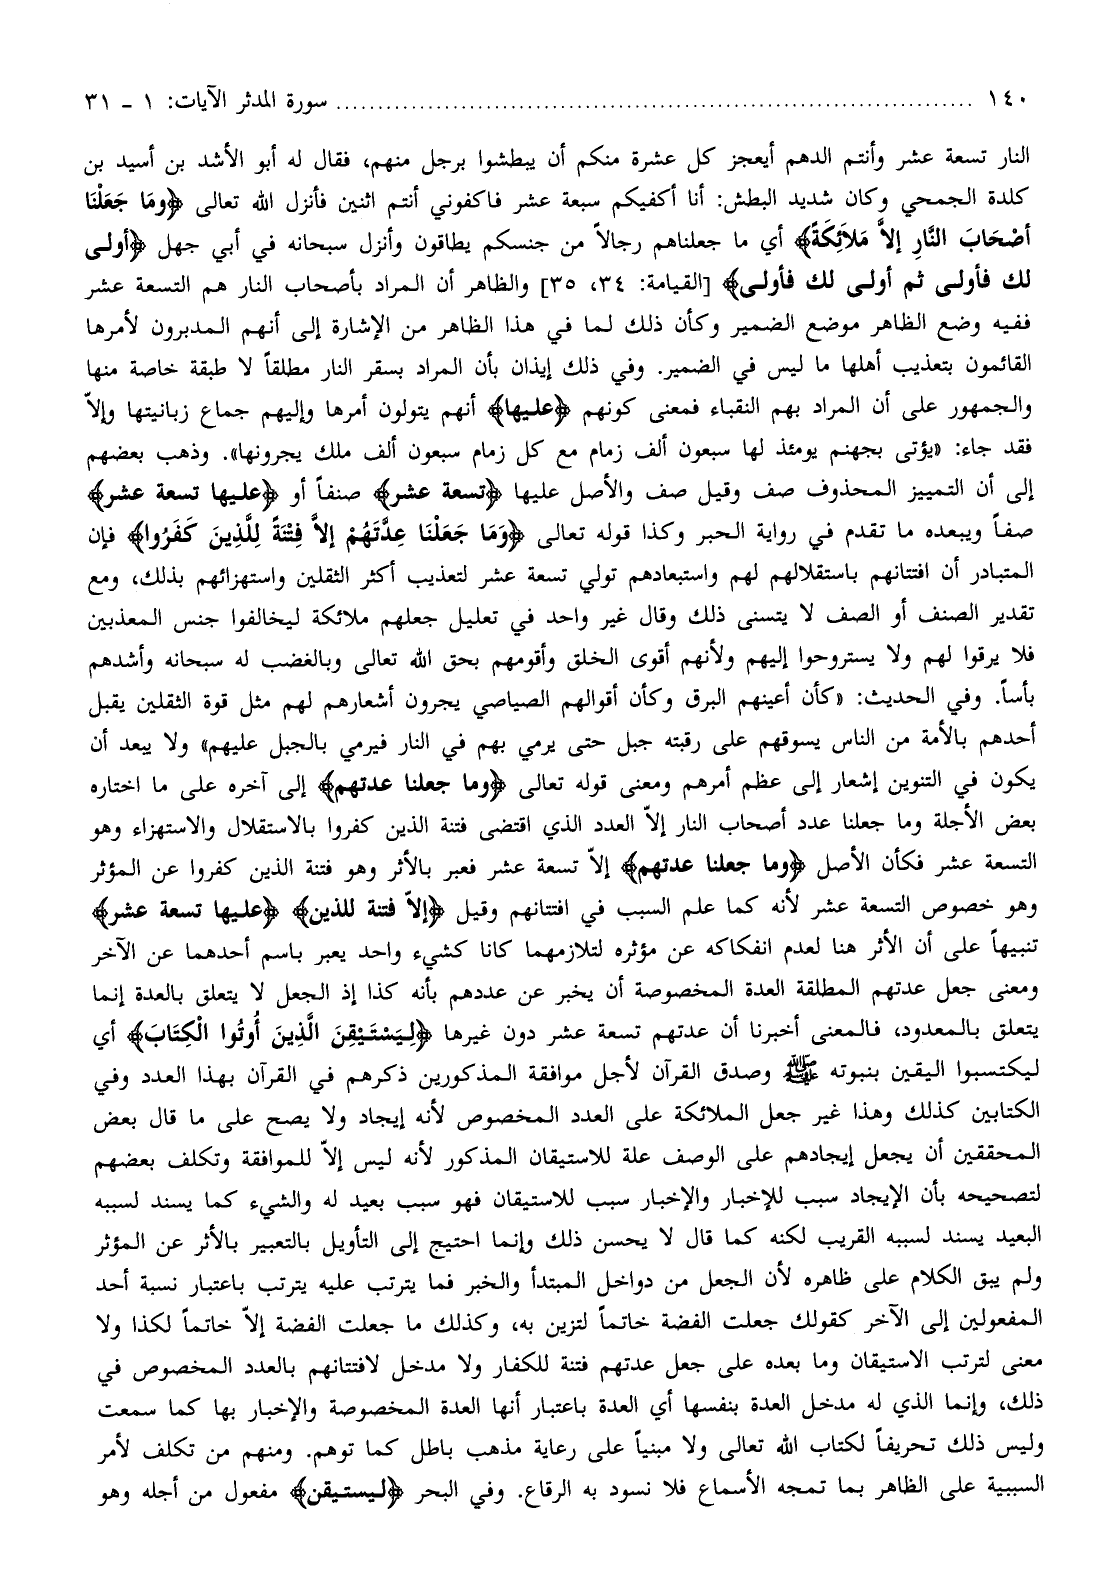 ١٤٠ ........................................................................ سورة المدثر الآيات: ١ - ٣١
النار تسعة عشر وأنتم الدهم أيعجز كل عشرة منكم أن يبطشوا برجل منهم، فقال له أبو الأشد بن أسيد بن
كلدة الجمحي وكان شديد البطش: أنا أكفيكم سبعة عشر فاكفوني أنتم اثنين فأنزل الله تعالى ﴿وما جَعَلْنَا
أصْحَابَ النَّارِ إلاَّ مَلاَئِكَةً﴾ أي ما جعلناهم رجالاً من جنسكم يطاقون وأنزل سبحانه في أبي جهل ﴿أولى
لك فأولى ثم أولى لك فأولى﴾ [القيامة: ٣٤، ٣٥] والظاهر أن المراد بأصحاب النار هم التسعة عشر
ففيه وضع الظاهر موضع الضمير وكأن ذلك لما في هذا الظاهر من الإشارة إلى أنهم المدبرون لأمرها
القائمون بتعذيب أهلها ما ليس في الضمير. وفي ذلك إيذان بأن المراد بسقر النار مطلقاً لا طبقة خاصة منها
والجمهور على أن المراد بهم النقباء فمعنى كونهم ﴿عليها﴾ أنهم يتولون أمرها وإليهم جماع زبانيتها وإلاّ
فقد جاء: «يؤتى بجهنم يومئذ لها سبعون ألف زمام مع كل زمام سبعون ألف ملك يجرونها». وذهب بعضهم
إلى أن التمييز المحذوف صف وقيل صف والأصل عليها ﴿تسعة عشر﴾ صنفاً أو ﴿عليها تسعة عشر﴾
صفاً ويبعده ما تقدم في رواية الحبر وكذا قوله تعالى ﴿وَمَا جَعَلْنَا عِدَّتَهُمْ إلاَّ فِتْنَةً لِلَّذِينَ كَفَرُوا﴾ فإن
المتبادر أن افتتانهم باستقلالهم لهم واستبعادهم تولي تسعة عشر لتعذيب أكثر الثقلين واستهزائهم بذلك، ومع
تقدير الصنف أو الصف لا يتسنى ذلك وقال غير واحد في تعليل جعلهم ملائكة ليخالفوا جنس المعذبين
فلا يرقوا لهم ولا يستروحوا إليهم ولأنهم أقوى الخلق وأقومهم بحق الله تعالى وبالغضب له سبحانه وأشدهم
بأساً. وفي الحديث: «كأن أعينهم البرق وكأن أقوالهم الصياصي يجرون أشعارهم لهم مثل قوة الثقلين يقبل
أحدهم بالأمة من الناس يسوقهم على رقبته جبل حتى يرمي بهم في النار فيرمي بالجبل عليهم» ولا يبعد أن
يكون في التنوين إشعار إلى عظم أمرهم ومعنى قوله تعالى ﴿وما جعلنا عدتهم﴾ إلى آخره على ما اختاره
بعض الأجلة وما جعلنا عدد أصحاب النار إلاّ العدد الذي اقتضى فتنة الذين كفروا بالاستقلال والاستهزاء وهو
التسعة عشر فكأن الأصل ﴿وما جعلنا عدتهم﴾ إلاّ تسعة عشر فعبر بالأثر وهو فتنة الذين كفروا عن المؤثر
وهو خصوص التسعة عشر لأنه كما علم السبب في افتتانهم وقيل ﴿إلاّ فتنة للذين﴾ ﴿عليها تسعة عشر﴾
تنبيهاً على أن الأثر هنا لعدم انفكاكه عن مؤثره لتلازمهما كانا كشيء واحد يعبر باسم أحدهما عن الآخر
ومعنى جعل عدتهم المطلقة العدة المخصوصة أن يخبر عن عددهم بأنه كذا إذ الجعل لا يتعلق بالعدة إنما
يتعلق بالمعدود، فالمعنى أخبرنا أن عدتهم تسعة عشر دون غيرها ﴿لِيَسْتَيْقِنَ الَّذِينَ أُوتُوا الْكِتَابَ﴾ أي
ليكتسبوا اليقين بنبوته ﷺ وصدق القرآن لأجل موافقة المذكورين ذكرهم في القرآن بهذا العدد وفي
الكتابين كذلك وهذا غير جعل الملائكة على العدد المخصوص لأنه إيجاد ولا يصح على ما قال بعض
المحققين أن يجعل إيجادهم على الوصف علة للاستيقان المذكور لأنه ليس إلاّ للموافقة وتكلف بعضهم
لتصحيحه بأن الإيجاد سبب للإخبار والإخبار سبب للاستيقان فهو سبب بعيد له والشيء كما يسند لسببه
البعيد يسند لسببه القريب لكنه كما قال لا يحسن ذلك وإنما احتيج إلى التأويل بالتعبير بالأثر عن المؤثر
ولم يبق الكلام على ظاهره لأن الجعل من دواخل المبتدأ والخبر فما يترتب عليه يترتب باعتبار نسبة أحد
المفعولين إلى الآخر كقولك جعلت الفضة خاتماً لتزين به، وكذلك ما جعلت الفضة إلاّ خاتماً لكذا ولا
معنى لترتب الاستيقان وما بعده على جعل عدتهم فتنة للكفار ولا مدخل لافتتانهم بالعدد المخصوص في
ذلك، وإنما الذي له مدخل العدة بنفسها أي العدة باعتبار أنها العدة المخصوصة والإخبار بها كما سمعت
وليس ذلك تحريفاً لكتاب الله تعالى ولا مبنياً على رعاية مذهب باطل كما توهم. ومنهم من تكلف لأمر
السببية على الظاهر بما تمجه الأسماع فلا نسود به الرقاع. وفي البحر ﴿ليستيقن﴾ مفعول من أجله وهو